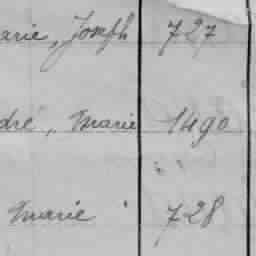 arie, Joseph 727
dré, Marie 1490
Marie 728